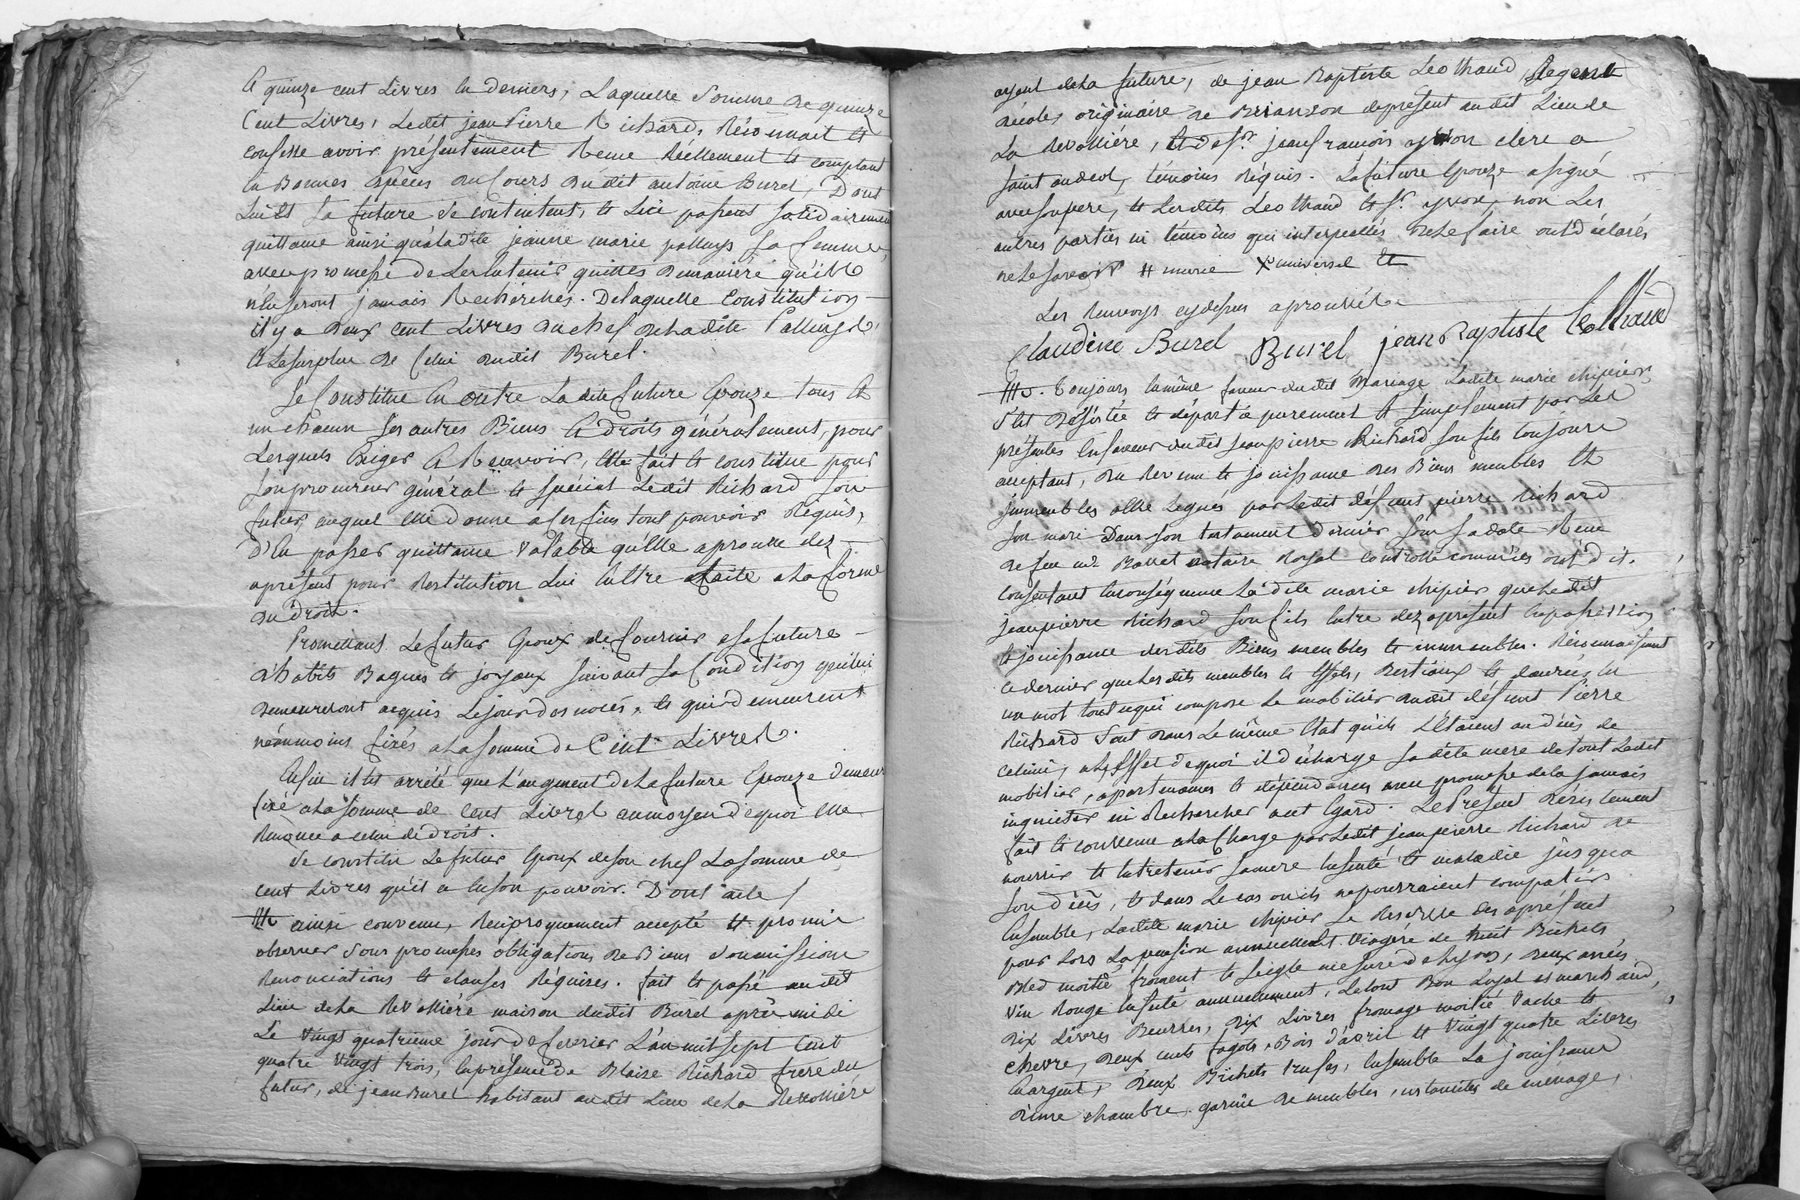 A quinze cent Livres En deniers, Laquelle Somme de quinze
Cent Livres, Ledit jean Pierre Richard, Réconnait Et
confesse avoir présentement Receu Réellement Et comptant
En Bonnes Espèces du Cours dudit antoine Burel, Dont
Lui Et Sa future Se contentent, Et L'en passent Solidairement
quittance ainsi qu'a ladite jeanne marie pallluys Sa femme,
avec promesse de Les En tenir quittes de maniére qu'ils
n'En Seront jamais Recherchés. De laquelle Constitution
il y a deux cent Livres du chef de ladite
Et Le Surplus de Celui dudit Burel.
Se Constitue En outre Ladite future Epouze tous Et
un chacun Ses autres Biens Et droits généralement, pour
Lesquels Exiger Et Recevoir, Elle fait Et constitue pour
Son procureur général Et Spécial Ledit Richard Son
futur, auquel Elle donne a Ces fins tout pouvoir Réquis,
D'En passer quittance Valable qu'Elle aprouve dez
apresent pour Restitution Lui En Etre faite a La forme
du droit.
Promettant Le futur Epoux de fournir a Sa future
d'habits Bagues Et joyaux Suivant Sa Condition qui lui
demeureront acquis Le jour des noces, Et qui demeurent
néanmoins fixés a La Somme de Cent Livres.
Enfin il Est arrété que L'augment de La future Epouze demeure
fixé a La Somme de Cent Livres au moyen de quoi Elle
Renonce a celui de droit.
Se constitue Le futur Epoux de Son chef La Somme de
cent Livres qu'il a En Son pouvoir. Dont acte
ainsi convenu, Reciproquement accepté Et promis
observer Sous promesses obligations de Biens Soumissions
Renonciations Et clauses Réquises. fait Et passé audit
Lieu de La Revolliére maison dudit Burel aprés midi
Le Vingt quatrieme jour de fevrier L'an mil Sept Cent
quatre Vingt trois, En présence de Blaise Richard frere du
futur, de jean Burel habitant audit Lieu de La Revolliére
ayeul de La future, de jean Baptiste Leothaud, Regent
décoles originaire de Brianson de présent audit Lieu de
La Revolliére, Et de Sr. jean françois yvon clerc a
Saint andeol, témoins réquis. La future Epouze a Signé
avec Son pere, Et Lesdits Léothaud Et Sr. yvon, non Les
autres parties ni témoins qui interpellés de Le faire ont déclarés
ne Le Savoir # marie X universel
Les Renvoys cy dessus aprouvés
Claudine Burel Burel jean Baptiste Leothaud
Toujours En même faveur dudit Mariage Ladite marie chipier
S'Est Désistée Et départie purement Et Simplement par Les
présentes En faveur dudit jean pierre Richard Son fils toujours
acceptant, du Revenu Et jouissance des Biens meubles Et
immeubles a Elle Legués par Ledit défunt pierre Richard
Son mari Dans Son testament dernier Sous Sa date Receu
de feu me Notaire Royal controllé comme il Est dit.
Consentant En conséquence Ladite marie chipier que Ledit
jean pierre Richard Son fils Entre dez apresent En possession
Et jouissance desdits Biens meubles Et immeubles. Réconnaissant
ce dernier que Lesdits meubles Et Effets, Bestiaux Et denrées, En
un mot tout ce qui compose Le mobilier dudit défunt Pierre
Richard Sont dans Le même Etat qu'ils Etaient au décès de
celui ci, a L'Effet de quoi il décharge Sadite mere de tout Ledit
mobilier, apartenances Et dépendances avec promesse de La jamais
inquieter ni Rechercher a cet Egard. Le Présent désistement
fait Et convenu a La Charge par Ledit jean pierre Richard de
nourrir Et Entretenir Sa mere En Santé Et maladie jusqu'a
Son décès, Et dans Le cas ou ils ne pourraient compatir
Ensemble, Ladite marie chipier Se Reserve des apresent
pour Lors La pension annuelle Et Viagére de huit Bichets
Bled moitié froment Et Seigle mesure de Lyon, deux anées
Vin Rouge En Sus annuellement, Le tout Bon Loyal Et marchand,
dix Livres Beurre, dix Livres fromage moitié Vache Et
chevre, deux cents fagots, Bois d'avril Et Vingt quatre Livres
En argent, deux Bichets trufes, Ensemble La jouissance
d'une chambre garnie de meubles, ustanciles de ménage,